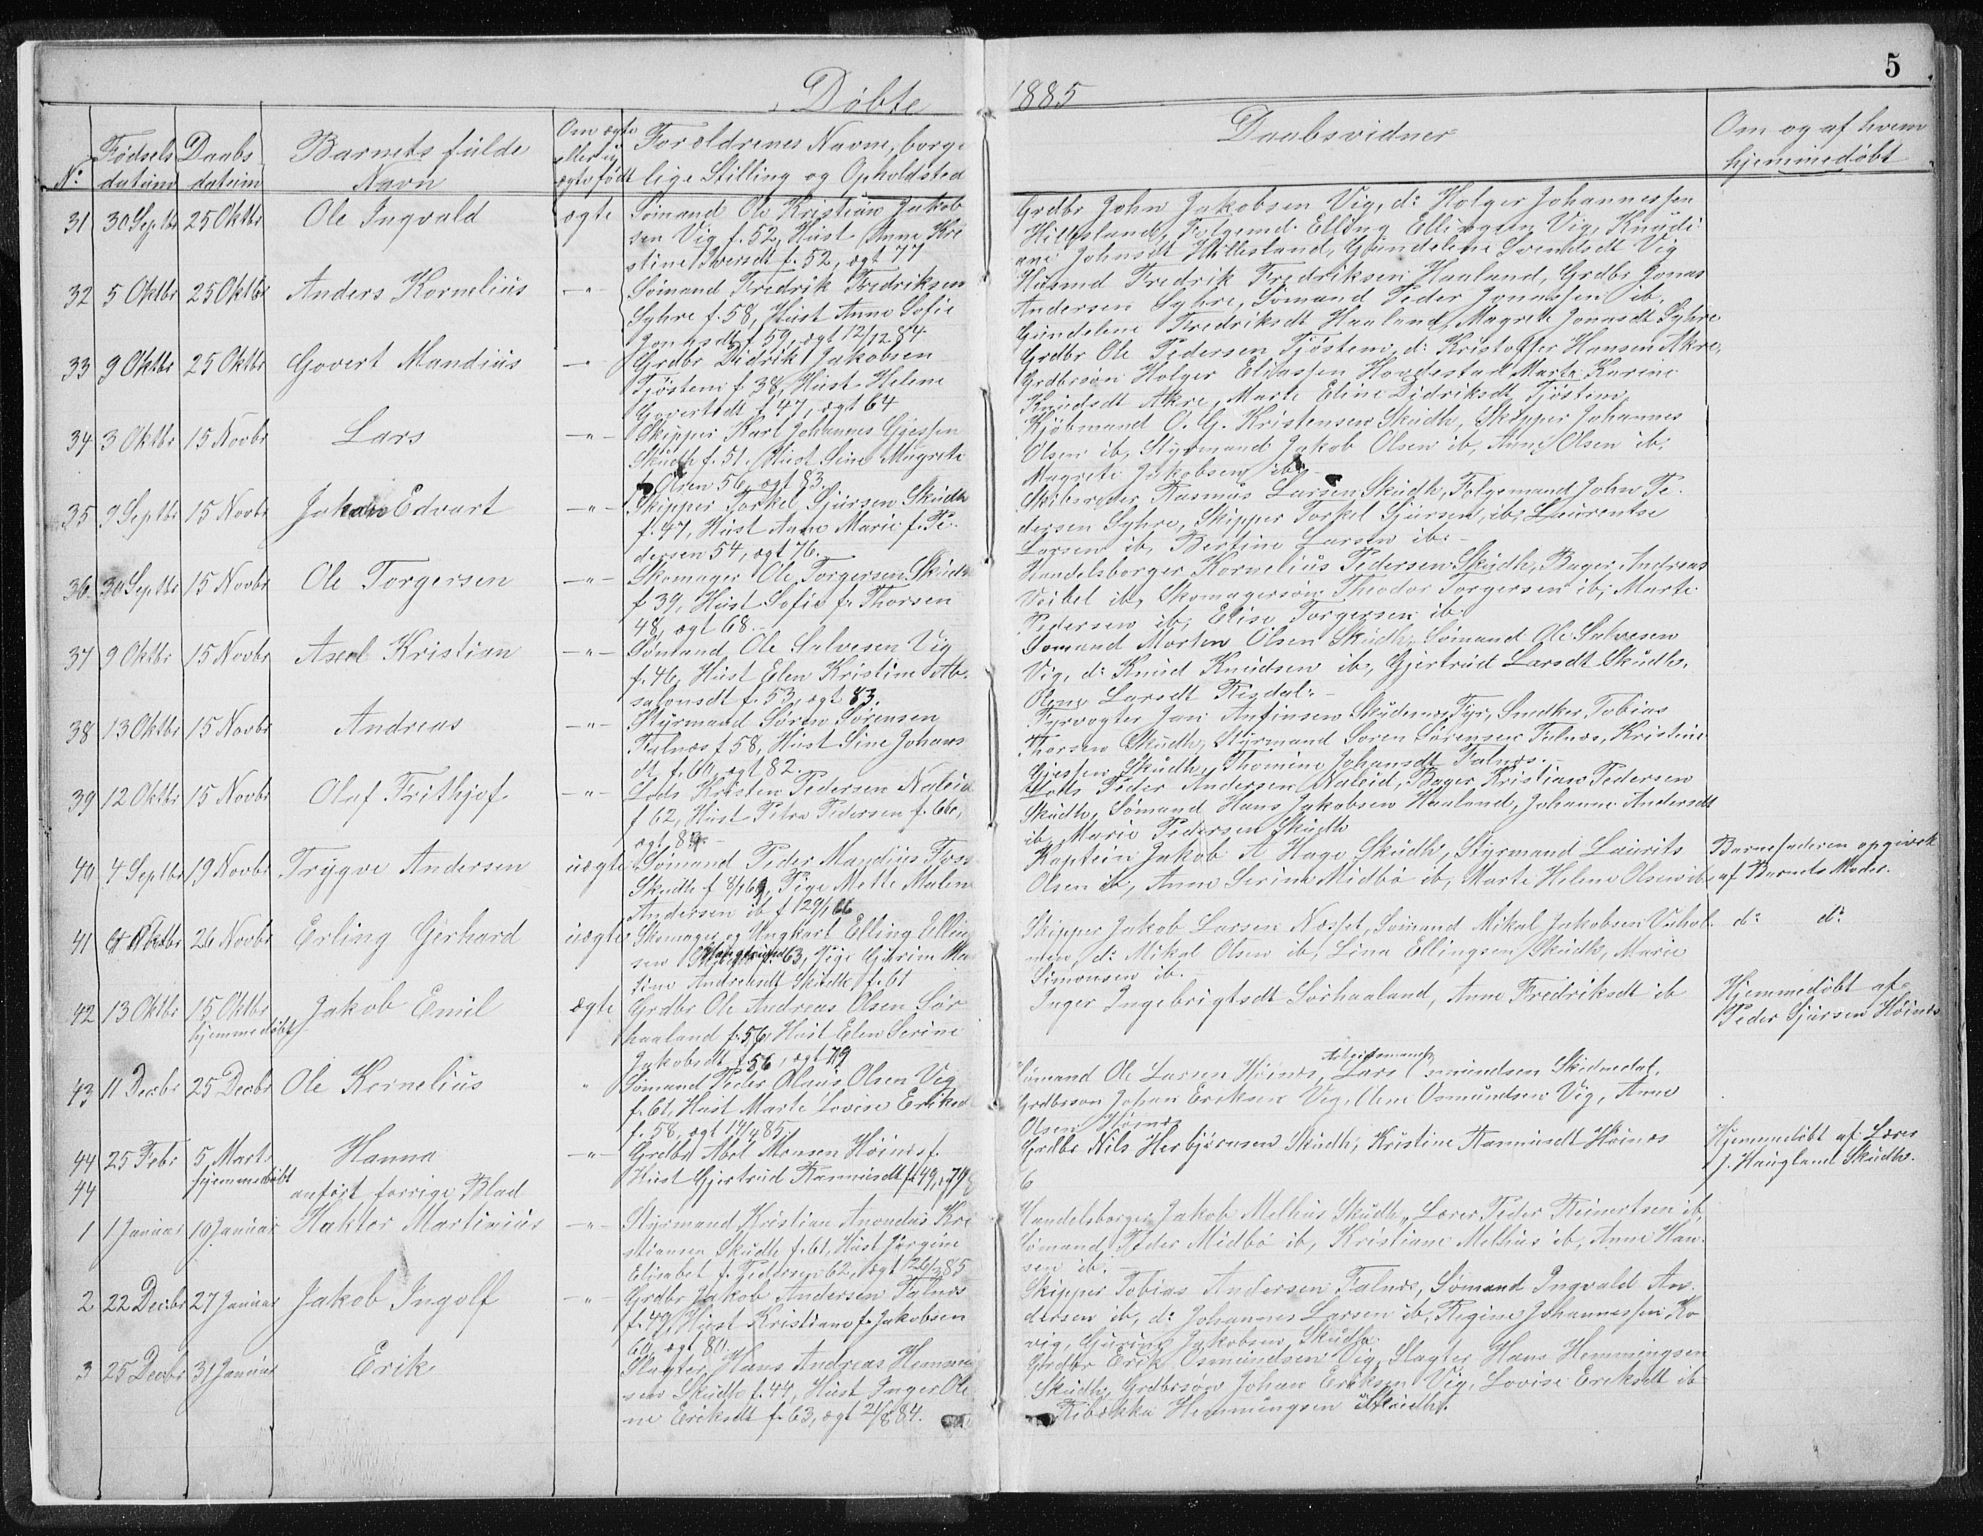 5
Døbte 1885
No
Fødsels datum
Daabs datum
Barnets fulde Navn
Om ægte eller uægte født
Forældrenes Navne, borgelige Stilling og Opholdsted
Daabsvidner
Om og af hvem hjemmedøbt
31 30 Septbr 25 Oktbr Ole Ingvald ægte
Sømand Ole Kristian Jakob
sen Vig f. 52, Hust Anne Kri
stine Iversdt f. 52, ægt 77
Grdbr John Jakobsen Vig, do Holger Johannessen
Hillesland, Følgemd. Elling Ellingsen Vig, Knudi
ane Johnsdt Hillesland, Gundeline Svendsdt Vig
32 5 Oktbr 25 Oktbr Anders Kornelius -"-
Sømand Fredrik Fredriksen
Syhre f. 58, Hust Anne Sofie
Jonasdt f. 59, ægt 12/12 84
Husmd Fredrik Fredriksen Haaland, Grdbr Jonas
Andersen Syhre, Sømand Peder Jonassen ib.
Gundeline Fredriksdt Haaland, Magrete Jonasdt Syhre
33 9 Oktbr 25 Oktbr Govert Mandius -"-
Grdbr Didrik Jakobsen
Tjøstem f. 38, Hust Helene
Govertsdt f. 47, ægt 64
Grdbr Ole Pedersen Tjøstem, do Kristoffer Hansen Akre,
Grdbrsøn Holger Eliassen Hovdestad Marta Karine
Knudsdt Akre, Marte Eline Didriksdt Tjøstem
34 3 Oktbr 15 Novbr Lars -"-
Skipper Karl Johannes Gjessen
Skudh f. 51. Hust Sine Magrete
f. Olsen 56, ægt 83.
Kjøbmand O. G. Kristensen Skudh, Skipper Johannes
Olsen ib, Styrmand Jakob Olsen ib, Anne Olsen ib.
Magrete Jakobsen ib.
35 9 Septbr 15 Novbr Johan Edvart -"-
Skipper Torkel Sjursen Skudh
f. 47, Hust Anne Marie f. Pe-
dersen 54, ægt 76.
Skibsreder Rasmus Larsen Skudh, Følgemand John Pe-
dersen Syhre, Skipper Torkel Sjursen, ib, Laurentse
Larsen ib, Bertine Larsen ib.
36 30 Septbr 15 Novbr Ole Torgersen -"-
Skomager Ole Torgersen Skudh
f 39, Hust Sofie f. Thorsen
48, ægt 68.
Handelsborger Kornelius Pedersen Skudh, Bager Andreas
Veibel ib, Skomagersøn Theodor Torgersen ib, Marte
Pedersen ib, Elise Torgersen ib.
37 9 Oktbr 15 Novbr Axel Kristian -"-
Sømand Ole Salvesen Vig
f. 46, Hust Elen Kristine Ab-
salonsdt f. 53, ægt 83.
Sømand Morten Olsen Skudh, Sømand Ole Salvesen
Vig, do Knud Knudsen ib, Gjertrud Larsdt Skudh,
Olene Larsdt
38 13 Oktbr 15 Novbr Andreas -"-
Styrmand Søren Sørensen
Falnæs f 58, Hust Sine Johans
dt f. 60, ægt 82.
Fyrvogter Jan Anfinsen Skudenæs Fyr, Snedker Tobias
Thorsen Skudh, Styrmand Søren Sørensen Falnæs, Kristine
Gjessen Skudh, Thomine Johansdt Falnæs.
39 12 Oktbr 15 Novbr Olaf Frithjof -"-
Lods Kristen Pedersen Naleid
f 62, Hust Petra Pedersen f. 60,
ægt 84.
Lods Peder Andersen Naleid, Bager Kristian Pedersen
Skudh, Sømand Hans Jakobsen Haaland, Johanne Andersdt
ib, Marie Pedersen Skudh
40 4 Septbr 19 Novbr Trygve Andersen uægte
Sømand Peder Mandius
Skudh f 8/1 61, Pige Mette Malene
Andersen ib f 129/1 66
Kaptein Jakob A Hage Skudh, Styrmand Laurits
Olsen ib, Anne Serine Midbø ib, Marte Helene Olsen ib
Barnefaderen opgivet
af Barnets Moder.
41 Oktbr 26 Novbr Erling Gerhard uægte
Skomager og Ungkarl Elling Ellin
sen f. 63, Pige Gurine Ma
sine Andreasdt Skudh f. 61
Skipper Jakob Larsen Næsset, Sømand Mikal Jakobsen
do Mikal Olsen ib, Lina Ellingsen Skudh, Marie
Simonsen ib.
do do
42 13 Oktbr 15 Oktbr hjemmedøbt Jakob Emil ægte
Grdbr Ole Andreas Olsen Sør
haaland f. 56, Hust Elen Serine
Jakobsdt f. 56, ægt 79
Inger Ingebrigtsdt Sørhaaland, Anne Fredriksdt ib
Hjemmedøbt af
Peder Sjursen Høinæs
43 11 Decbr 25 Decbr Ole Kornelius "
Sømand Peder Olaus Olsen Vig
f. 61, Hust Marte Lovise Eriksd
f. 58, ægt 19/4 85
Sømand Ole Larsen Høinæs, Arbeidsmand Lars Osmundsen Skidnedal.
Grdbrsøn Johan Eriksen Vig, Olene Osmundsen Vig, Anne
Olsen Høinæs
44 25 Febr 5 Marts hjemmedøbt Hanna -"-
Grdbr Abel Monsen Høinæs f.
Hust Gjertrud Rasmusdt f. 49, 79
Grdbr Nils Herbjørnsen Skudh, Kristine Rasmusdt Høinæs
Hjemmedøbt af Lærer
J. Haugland Skudh.
44 anført forrige Blad
6
1 1 Januar 10 Januar Haktor Martinius -"-
Styrmand Kristian Anondus Kri
stiansen Skudh f. 61, Hust Jørgine
Elisabet f. Pedersen 62, ægt 26/2 85
Handelsborger Jakob Melhus Skudh, Lærer Peder Reinertsen ib,
Sømand Peder Midbø ib, Kristiane Melhus ib, Anne Han-
sen ib.
2 22 Decbr 27 Januar Jakob Ingolf -"-
Grdbr Jakob Andersen Falnæs
f. 49, Hust Kristiane f. Jakobsen
60, ægt 80.
Skipper Tobias Andersen Falnæs, Sømand Ingvald An-
dersen ib, do Johannes Larsen ib, Regine Johannessen Ko-
vig, Gurine Jakobsen, Skudh.
3 25 Decbr 31 Januar Erik
Slagter Hans Andreas Hemming
sen Skudh f. 44, Hust Inger Ole
ne Eriksdt f. 63, ægt 21/8 84.
Grdbr Erik Osmundsen Vig, Slagter Hans Hemmingsen
Skudh, Grdbrsøn Johan Eriksen Vig, Lovise Eriksdt ib
Ribekka Hemmingsen Skudh.